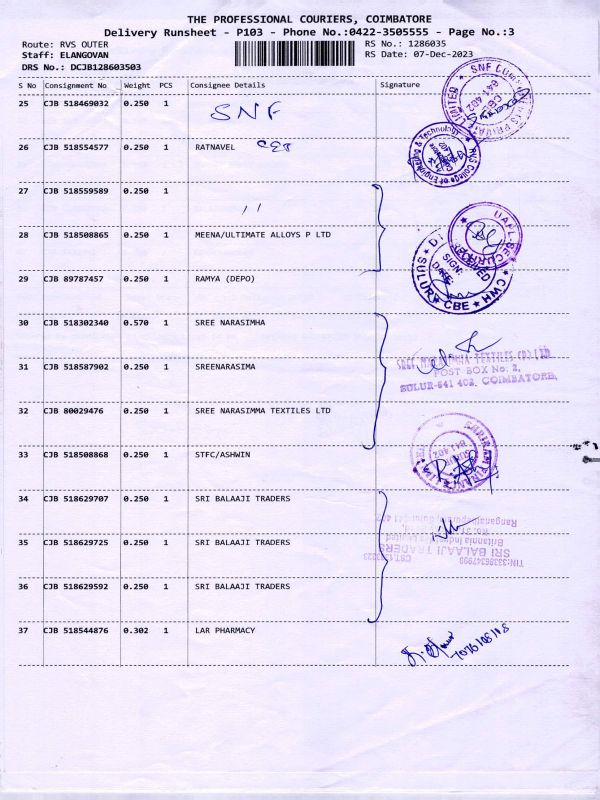 THE PROFESSIONAL COURIERS, COIMBATORE
Delivery Runsheet - P103 - Phone No.:0422-3505555 - Page No.:3
Route: RVS OUTER RS No.: 1286035
Staff: ELANGOVAN RS Date: 07-Dec-2023
DRS No.: DCJB128603503
S No Consignment No Weight PCS Consignee Details Signature
25 CJB 518469032 0.250 1 SNF
26 CJB 518554577 0.250 1 RATNAVEL
27 CJB 518559589 0.250 1 ,,
28 CJB 518508865 0.250 1 MEENA/ULTIMATE ALLOYS P LTD
29 CJB 89787457 0.250 1 RAMYA (DEPO)
30 CJB 518302340 0.570 1 SREE NARASIMHA
31 CJB 518587902 0.250 1 SREENARASIMA
32 CJB 80029476 0.250 1 SREE NARASIMMA TEXTILES LTD
33 CJB 518508868 0.250 1 STFC/ASHWIN
34 CJB 518629707 0.250 1 SRI BALAAJI TRADERS
35 CJB 518629725 0.250 1 SRI BALAAJI TRADERS
36 CJB 518629592 0.250 1 SRI BALAAJI TRADERS
37 CJB 518544876 0.302 1 LAR PHARMACY
SNF
641 402
RVS College of Engineering & Technology
UAPL SECURITY
SULUR CBE HWC
SIGN:
DATE:
TEXTILES (P) LTD
POST BOX No: 2,
SULUR-641 402, COIMBATORE,
641 402
SRI BALAAJI TRADERS
Britannia Industries Limited,
TIN:33386347999